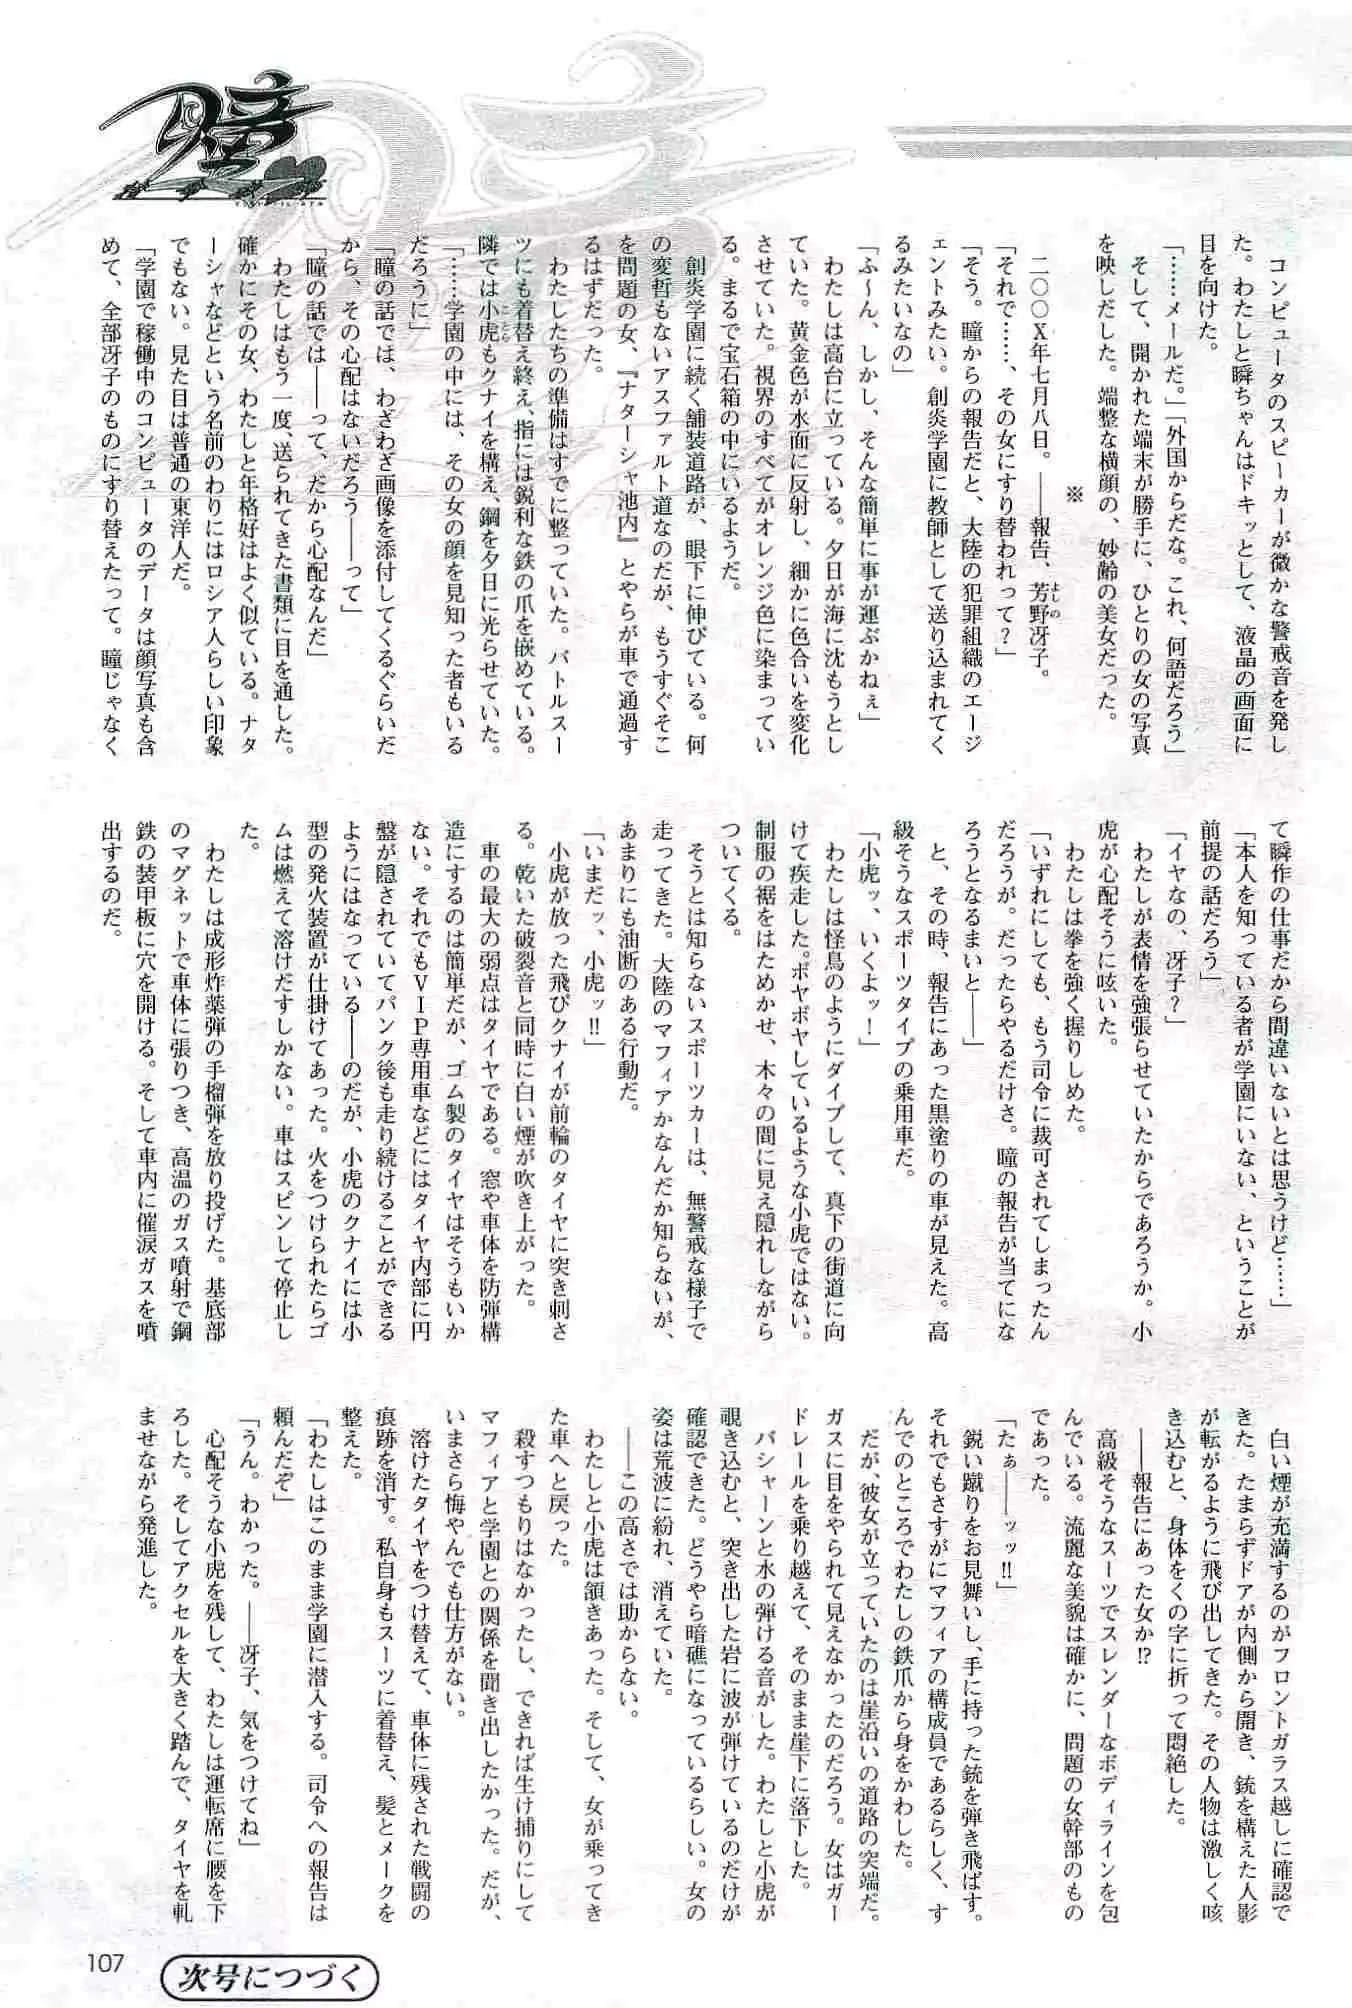 コンピュータのスピーカーが微かな警戒音を発し
た。わたしと瞬ちゃんはドキッとして、液晶の画面に
目を向けた。
「……メールだ。」「外国からだな。これ、何語だろう」
そして、開かれた端末が勝手に、ひとりの女の写真
を映しだした。端整な横顔の、妙齢の美女だった。
※
二〇〇X年七月八日。――報告、芳野冴子。
よしの
「それで……、その女にすり替われって？」
「そう。瞳からの報告だと、大陸の犯罪組織のエージ
ェントみたい。創炎学園に教師として送り込まれてく
るみたいなの」
「ふ～ん、しかし、そんな簡単に事が運ぶかねぇ」
わたしは高台に立っている。夕日が海に沈もうとし
ていた。黄金色が水面に反射し、細かに色合いを変化
させていた。視界のすべてがオレンジ色に染まってい
る。まるで宝石箱の中にいるようだ。
創炎学園に続く舗装道路が、眼下に伸びている。何
の変哲もないアスファルト道なのだが、もうすぐそこ
を問題の女、『ナターシャ池内』とやらが車で通過す
るはずだった。
わたしたちの準備はすでに整っていた。バトルスー
ツにも着替え終え、指には鋭利な鉄の爪を嵌めている。
隣では小虎もクナイを構え、鋼を夕日に光らせていた。
ことら
「……学園の中には、その女の顔を見知った者もいる
だろうに」
「瞳の話では、わざわざ画像を添付してくるぐらいだ
から、その心配はないだろう――って」
「瞳の話では――って、だから心配なんだ」
わたしはもう一度、送られてきた書類に目を通した。
確かにその女、わたしと年格好はよく似ている。ナタ
ーシャなどという名前のわりにはロシア人らしい印象
でもない。見た目は普通の東洋人だ。
「学園で稼働中のコンピュータのデータは顔写真も含
めて、全部冴子のものにすり替えたって。瞳じゃなく
て瞬作の仕事だから間違いないとは思うけど……」
「本人を知っている者が学園にいない、ということが
前提の話だろう」
「イヤなの、冴子？」
わたしが表情を強張らせていたからであろうか。小
虎が心配そうに呟いた。
わたしは拳を強く握りしめた。
「いずれにしても、もう司令に裁可されてしまったん
だろうが。だったらやるだけさ。瞳の報告が当てにな
ろうとなるまいと――」
と、その時、報告にあった黒塗りの車が見えた。高
級そうなスポーツタイプの乗用車だ。
「小虎ッ、いくよッ！」
わたしは怪鳥のようにダイブして、真下の街道に向
けて疾走した。ボヤボヤしているような小虎ではない。
制服の裾をはためかせ、木々の間に見え隠れしながら
ついてくる。
そうとは知らないスポーツカーは、無警戒な様子で
走ってきた。大陸のマフィアかなんだか知らないが、
あまりにも油断のある行動だ。
「いまだッ、小虎ッ!!」
小虎が放った飛びクナイが前輪のタイヤに突き刺さ
る。乾いた破裂音と同時に白い煙が吹き上がった。
車の最大の弱点はタイヤである。窓や車体を防弾構
造にするのは簡単だが、ゴム製のタイヤはそうもいか
ない。それでもVIP専用車などにはタイヤ内部に円
盤が隠されていてパンク後も走り続けることができる
ようにはなっている――のだが、小虎のクナイには小
型の発火装置が仕掛けてあった。火をつけられたらゴ
ムは燃えて溶けだすしかない。車はスピンして停止し
た。
わたしは成形炸薬弾の手榴弾を放り投げた。基底部
のマグネットで車体に張りつき、高温のガス噴射で鋼
鉄の装甲板に穴を開ける。そして車内に催涙ガスを噴
出するのだ。
白い煙が充満するのがフロントガラス越しに確認で
きた。たまらずドアが内側から開き、銃を構えた人影
が転がるように飛び出してきた。その人物は激しく咳
き込むと、身体をくの字に折って悶絶した。
――報告にあった女か!?
高級そうなスーツでスレンダーなボディラインを包
んでいる。流麗な美貌は確かに、問題の女幹部のもの
であった。
「たぁ――ッッ!!」
鋭い蹴りをお見舞いし、手に持った銃を弾き飛ばす。
それでもさすがにマフィアの構成員であるらしく、す
んでのところでわたしの鉄爪から身をかわした。
だが、彼女が立っていたのは崖沿いの道路の突端だ。
ガスに目をやられて見えなかったのだろう。女はガー
ドレールを乗り越えて、そのまま崖下に落下した。
バシャーンと水の弾ける音がした。わたしと小虎が
覗き込むと、突き出した岩に波が弾けているのだけが
確認できた。どうやら暗礁になっているらしい。女の
姿は荒波に紛れ、消えていた。
――この高さでは助からない。
わたしと小虎は頷きあった。そして、女が乗ってき
た車へと戻った。
殺すつもりはなかったし、できれば生け捕りにして
マフィアと学園との関係を聞き出したかった。だが、
いまさら悔やんでも仕方がない。
溶けたタイヤをつけ替えて、車体に残された戦闘の
痕跡を消す。私自身もスーツに着替え、髪とメークを
整えた。
「わたしはこのまま学園に潜入する。司令への報告は
頼んだぞ」
「うん。わかった。――冴子、気をつけてね」
心配そうな小虎を残して、わたしは運転席に腰を下
ろした。そしてアクセルを大きく踏んで、タイヤを軋
ませながら発進した。
次号につづく
107